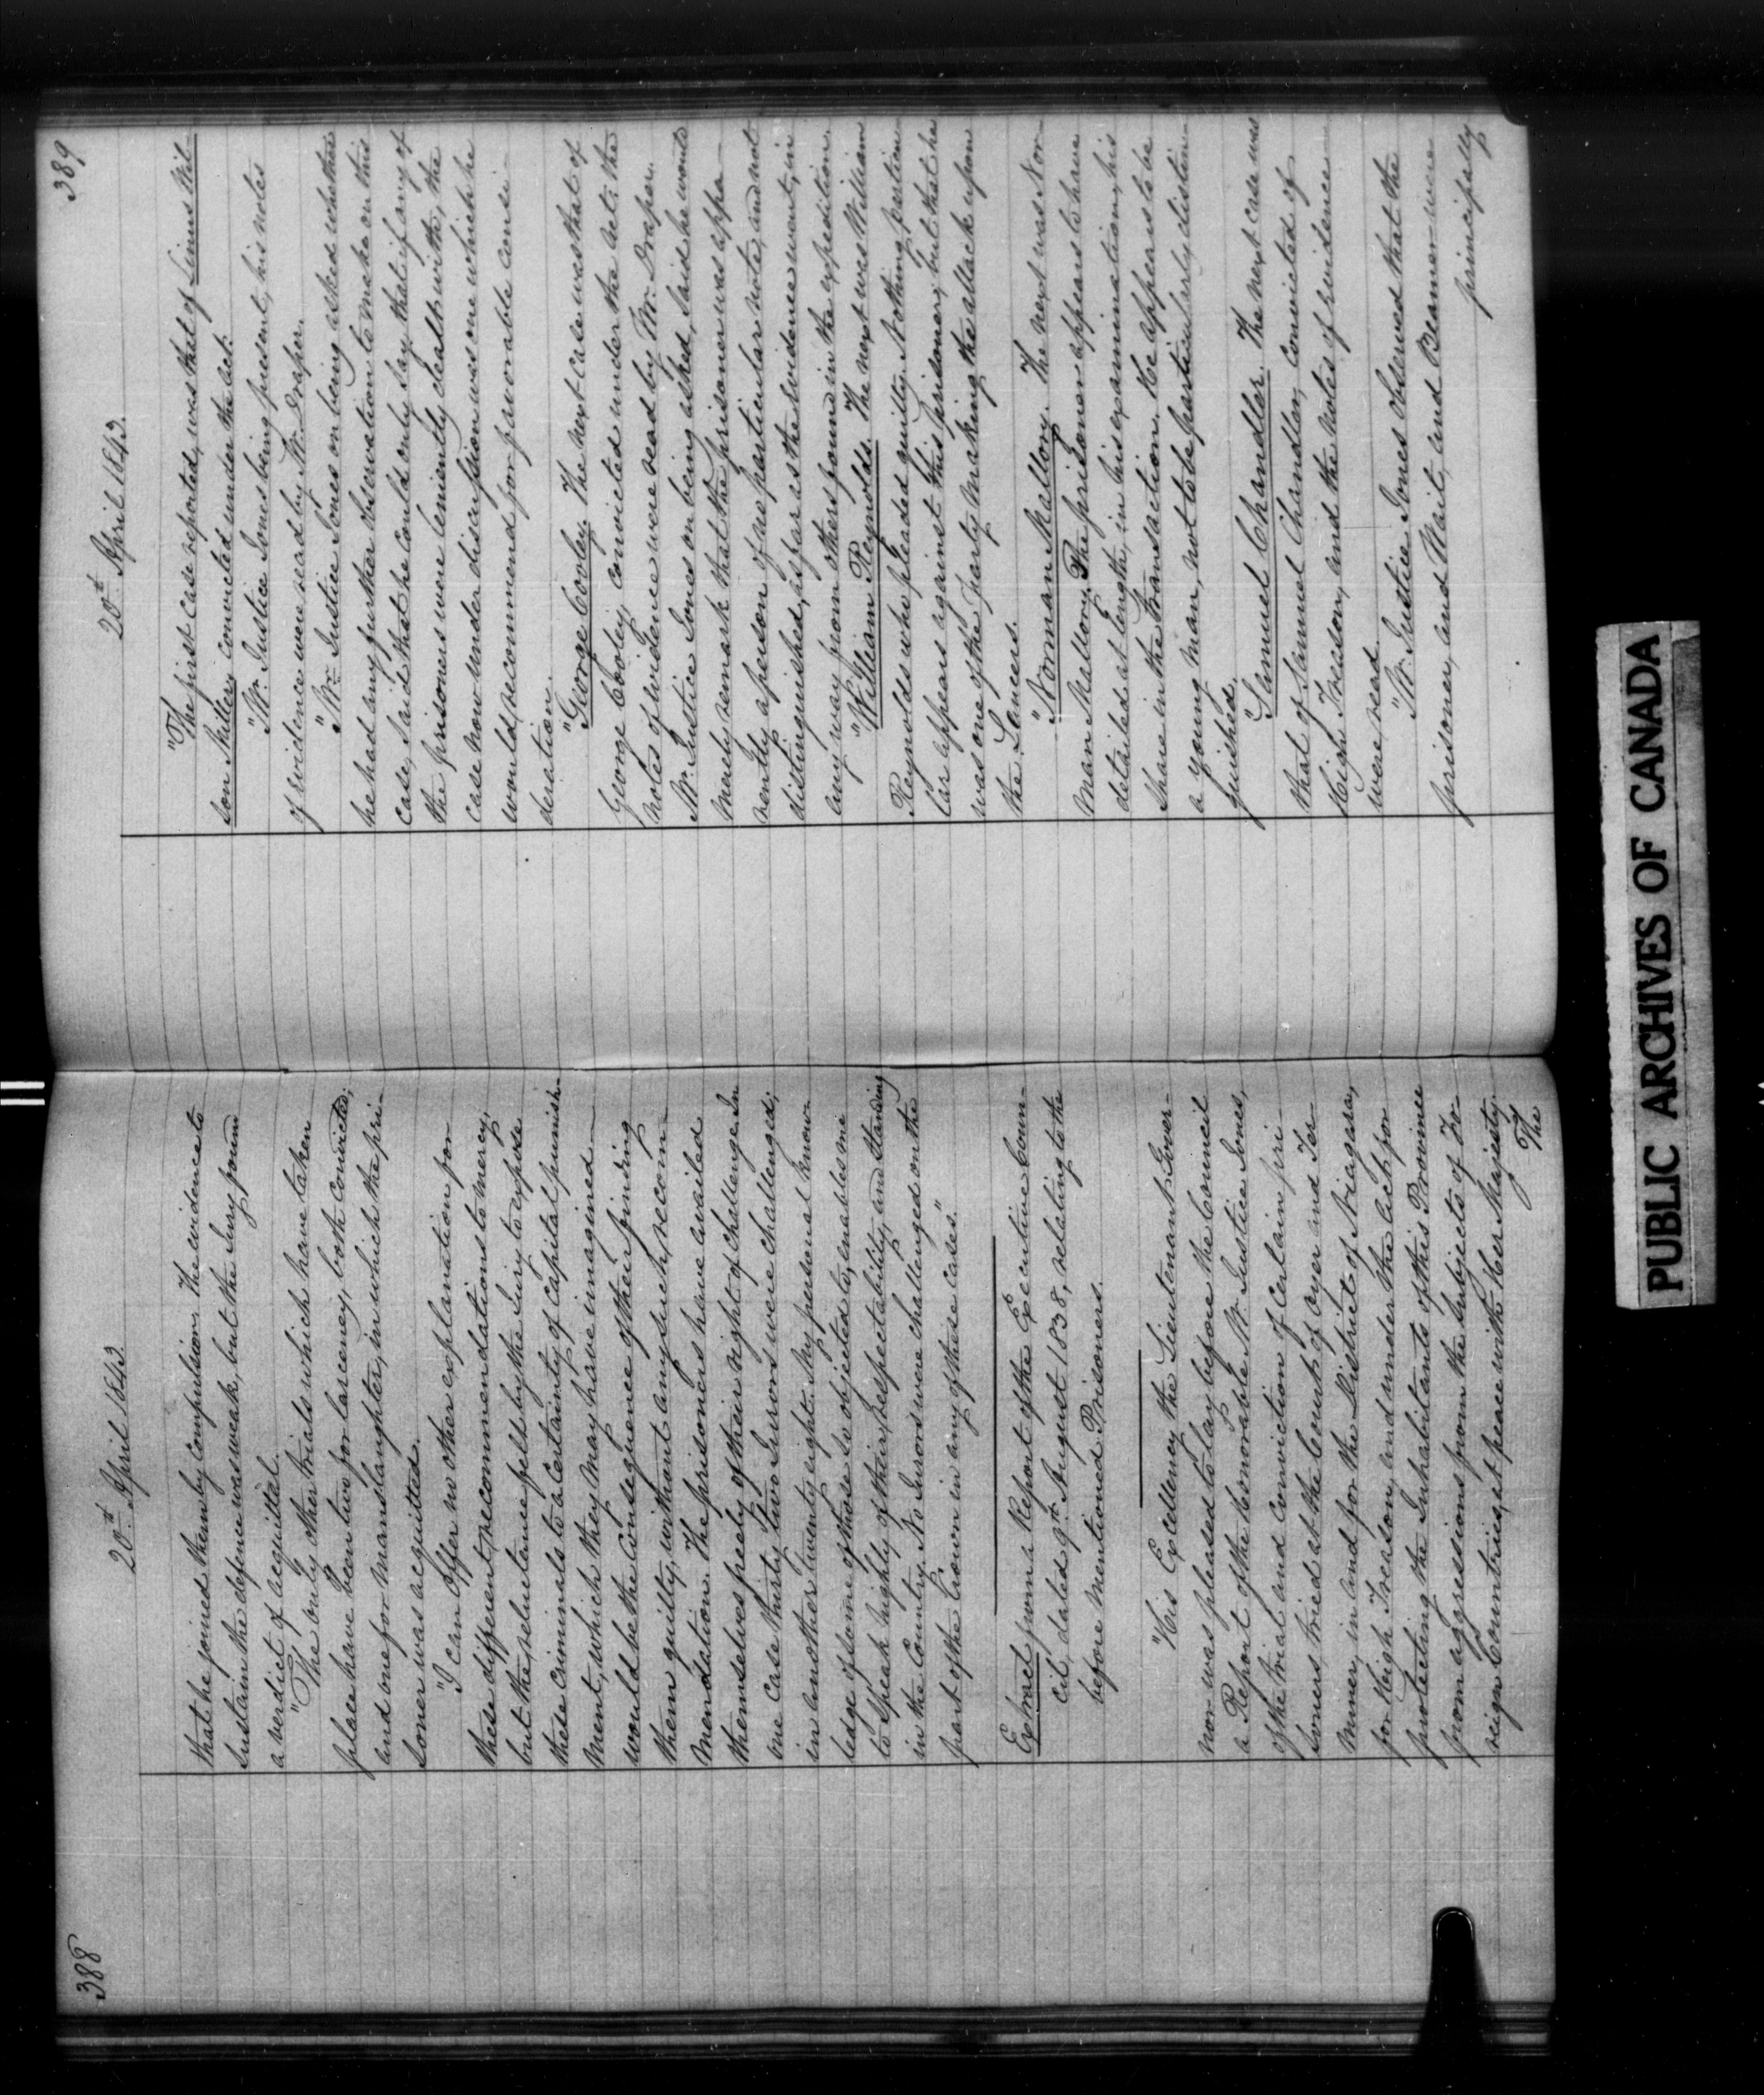 388
20th April 1843.
that he joined them by compulsion. The evidence to
sustain the defence was weak, but the Jury found
a verdict of acquittal.
"The only other trials which have taken
place have been two for larceny, both convicted;
and one for manslaughter, in which the pri-
soner was acquitted.
"I can offer no other explanation for
these different recommendations to mercy,
but the reluctance felt by the Jury to expose
these criminals to a certainty of capital punish-
ment, which they may have imagined
would be the consequence of their finding
them guilty, without any such recom-
mendation. The prisoners have availed
themselves freely of their right of challenge. In
one case thirty two Jurors were challenged;
in another twenty eight. My personal know-
ledge of some of those so objected to, enables me
to speak highly of their respectability, and standing
in the Country. No Jurors were challenged on the
part of the Crown in any of these cases."
Extract from a Report of the Executive Coun-
cil, dated 9th August 1838, relating to the
before mentioned Prisoners.
"His Excellency the Lieutenant Gover-
nor was pleased to lay before the Council
a Report of the Honorable Mr. Justice Jones,
of the trial and conviction of certain pri-
soners, tried at the Court of Oyer and Ter-
miner, in and for the District of Niagara,
for High Treason, and under the Act for
protecting the Inhabitants of this Province
from aggressions from the Subjects of Fo-
reign Countries, at peace with Her Majesty.
The
389
20th April 1843.
"The first case reported, was that of Linus Wil-
son Miller, convicted under the act.
"Mr. Justice Jones being present, his notes
of evidence were read by Mr. Draper.
"Mr. Justice Jones on being asked whether
he had any further observation to make on this
case, said that he could only say, that if any of
the prisoners were leniently dealt with, the
case now under discussion was one which he
would recommend for favorable consi-
deration.
"George Cooley. The next case was that of
George Cooley, convicted under the act: the
notes of evidence were read by Mr. Draper.
Mr. Justice Jones on being asked, said he would
merely remark that the prisoner was appa-
rently a person of no particular note, and not
distinguished, as far as the evidence went, in
any way from others found in the expedition.
"William Reynolds. The next was William
Reynolds who pleaded guilty. Nothing particu-
lar appears against this prisoner, but that he
was one of the party making the attack upon
the Lancers.
"Norman Mallory. The next was Nor-
man Mallory. The prisoner appears to have
detailed at length, in his examination, his
share in the transaction. He appears to be
a young man, not to be particularly distin-
guished.
"Samuel Chandler. The next case was
that of Samuel Chandler, convicted of
High Treason, and the notes of evidence
were read.
"Mr. Justice Jones observed that the
prisoner, and Wait, and Beamer were
principally
PUBLIC ARCHIVES OF CANADA